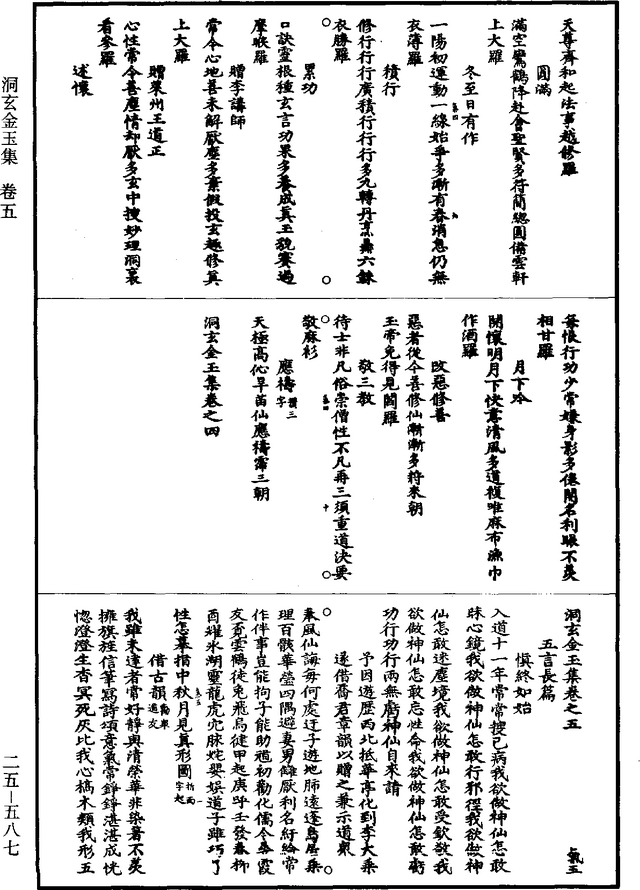 洞玄金玉集 卷五
天尊齊和起法事越修羅
圓滿
滿空鸞鶴降赴會聖賢多符簡總圓備雲軒
上大羅
冬至日有作
一陽初運動一線始爭多漸有春消息仍無
衣薄羅
積行
修行行行廣積行行行多九轉丹烹壽六銖
衣勝羅
累功
口訣靈根種玄言功果多養成真玉貌賽過
摩睺羅
贈李講師
常令心地善未解厭塵多棄假投玄趣修真
上大羅
贈萊州王道正
心性常令善塵情却厭多玄中搜妙理洞裏
看參羅
述懷
每悵行功少常嫌身影多儂閑名利賬不羨
相甘羅
月下吟
開懷明月下快意清風多道禎唯麻布漉巾
作酒羅
改惡修善
惡者從今善修仙漸漸多將來朝
玉帝免得見閻羅
敬三教
待士非凡俗崇僧性不凡再三須重道決要
敬麻衫
應禱 攢三字
天極高心旱苗仙應禱霈三朝
洞玄金玉集卷之四
洞玄金玉集卷之五 氣五
五言長篇
慎終如始
入道十一年常常搜己病我欲做神仙怎敢
昧心鏡我欲做神仙怎敢行邪徑我欲做神
仙怎敢迷塵境我欲做神仙怎敢受欽敬我
欲做神仙怎敢忘性命我欲做神仙怎敢虧
功行功行兩無虧神仙自來請
予因遊歷西北抵華亭化到李大乘
遂借喬君章韻以贈之兼示道衆
乘風仙誨每何處迓子遊地肺遠逢島居乘
理百骸華瑩四隅避妻男餘厭利名紆綸常
作伴事豈能拘子能助道初勸化儒今蒙霞
友覓雲鶴徒兔飛烏徒甲起庚呼壬發春柳
酉耀氷湖靈龍虎穴脉姹嬰娛道子雖巧了
性怎摹揩中秋月見真形圖 折西字起
借古韻 勸衆道友
我雖未達者常好靜與清榮華非染著不羨
擁旗旌信筆寫詩頌意氣常錚錚湛湛成恍
惚澄澄生杳冥死灰比我心槁木類我形五
二五—五八七